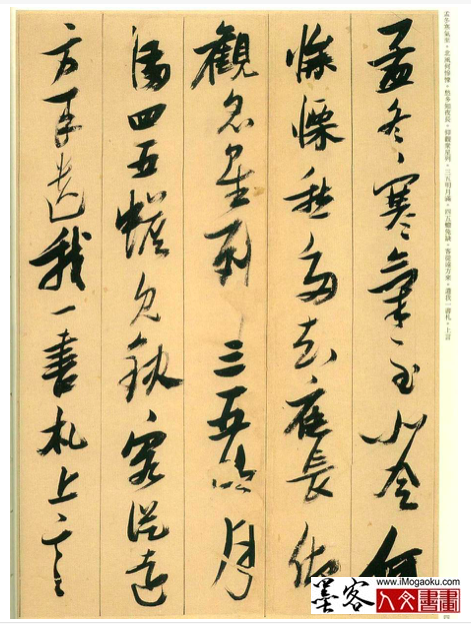 孟冬寒氣至。北風何慘慄。愁多知夜長。仰觀眾星列。三五明月滿。四五蟾兔缺。客從遠方來。遺我一書札。上言
孟冬寒氣至北風何
慘慄愁多知夜長仰
觀眾星列三五明月
滿四五蟾兔缺客從遠
方來遺我一書札上言
www.iMogaoku.com
墨客 人文書畫